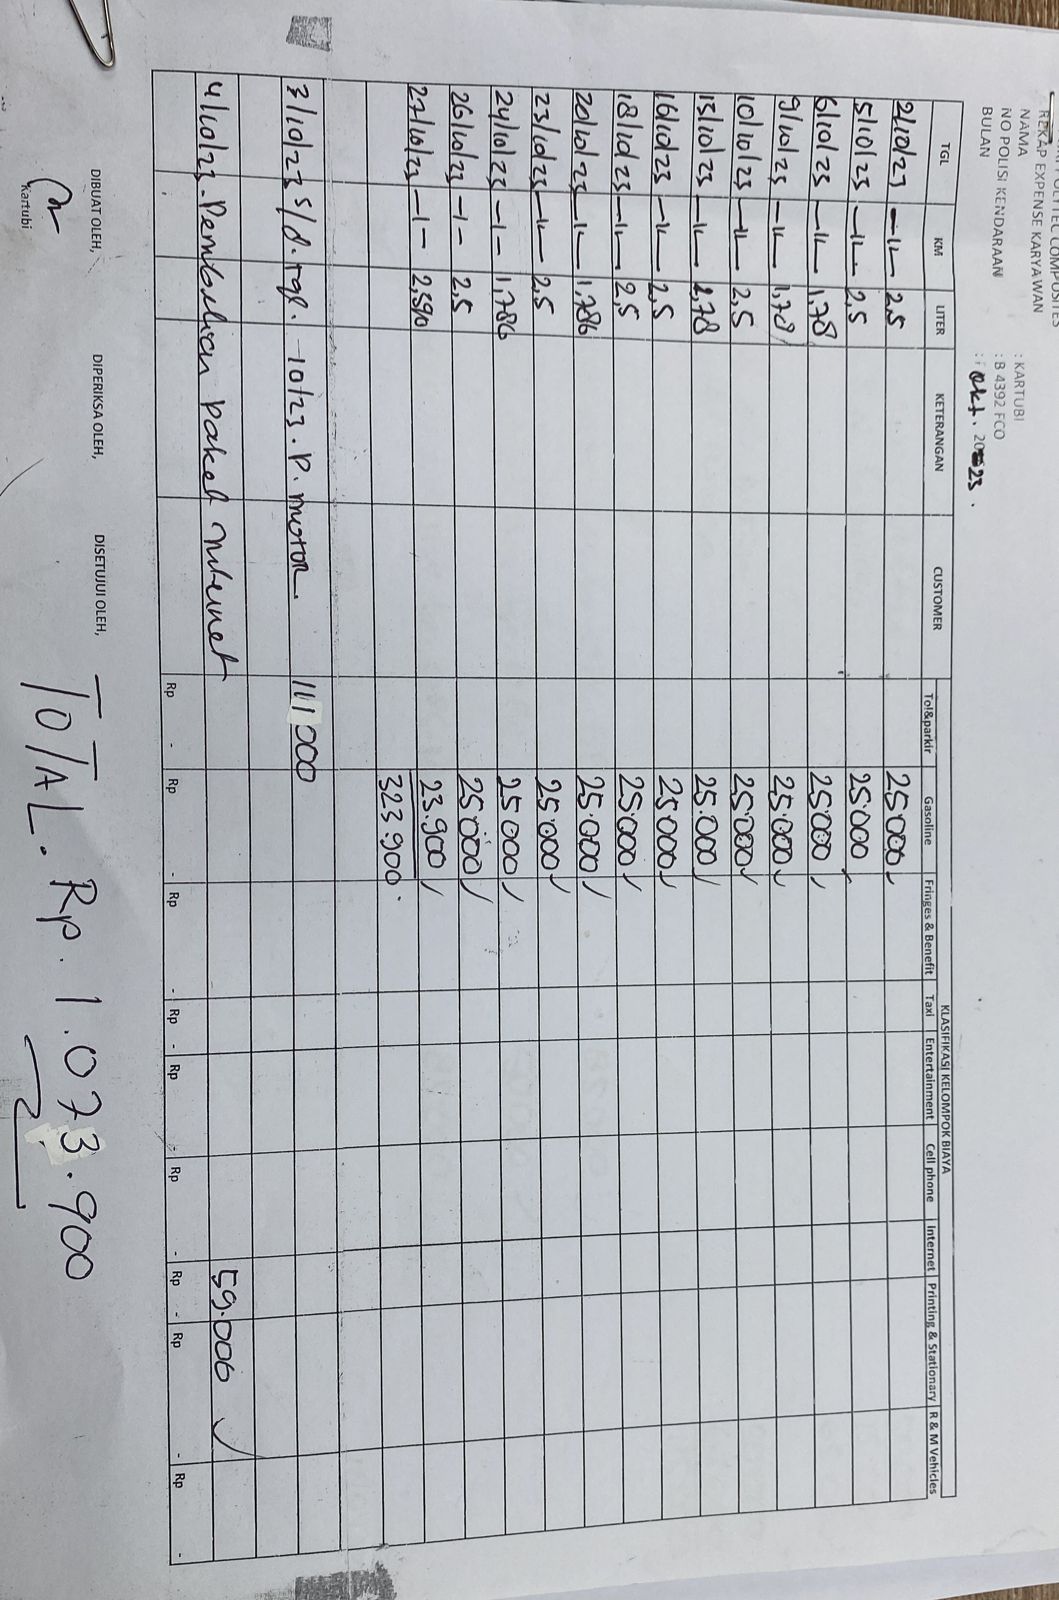 COMPOSITES
REKAP EXPENSE KARYAWAN
NAMA : KARTUBI
NO POLISI KENDARAAN : B 4392 FCO
BULAN : Okt. 2023.
KLASIFIKASI KELOMPOK BIAYA
TGL KM LITER KETERANGAN CUSTOMER Tol&parkir Gasoline Fringes & Benefit Taxi Entertainment Cell phone Internet Printing & Stationary R & M Vehicles
2/10/23 -"- 2,5 25000
5/10/23 -"- 2,5 25.000
6/10/23 -"- 1,78 25000
9/10/23 -"- 1,78 25.000
10/10/23 -"- 2,5 25000
13/10/23 -"- 1,78 25.000
16/10/23 -"- 2,5 25000
18/10/23 -"- 2,5 25.000
20/10/23 -"- 1,786 25.000
23/10/23 -"- 2,5 25.000
24/10/23 -"- 1,786 25.000
26/10/23 -"- 2,5 25.000
27/10/23 -"- 2,590 23.900
323.900.
3/10/23 s/d. tgl. -10/23. P. motor. 111000
4/10/23. Pembelian paket internet 59.000
Rp - Rp - Rp - Rp - Rp - Rp - Rp - Rp - Rp -
DIBUAT OLEH, DIPERIKSA OLEH, DISETUJUI OLEH,
Kartubi
TOTAL. Rp. 1.073.900